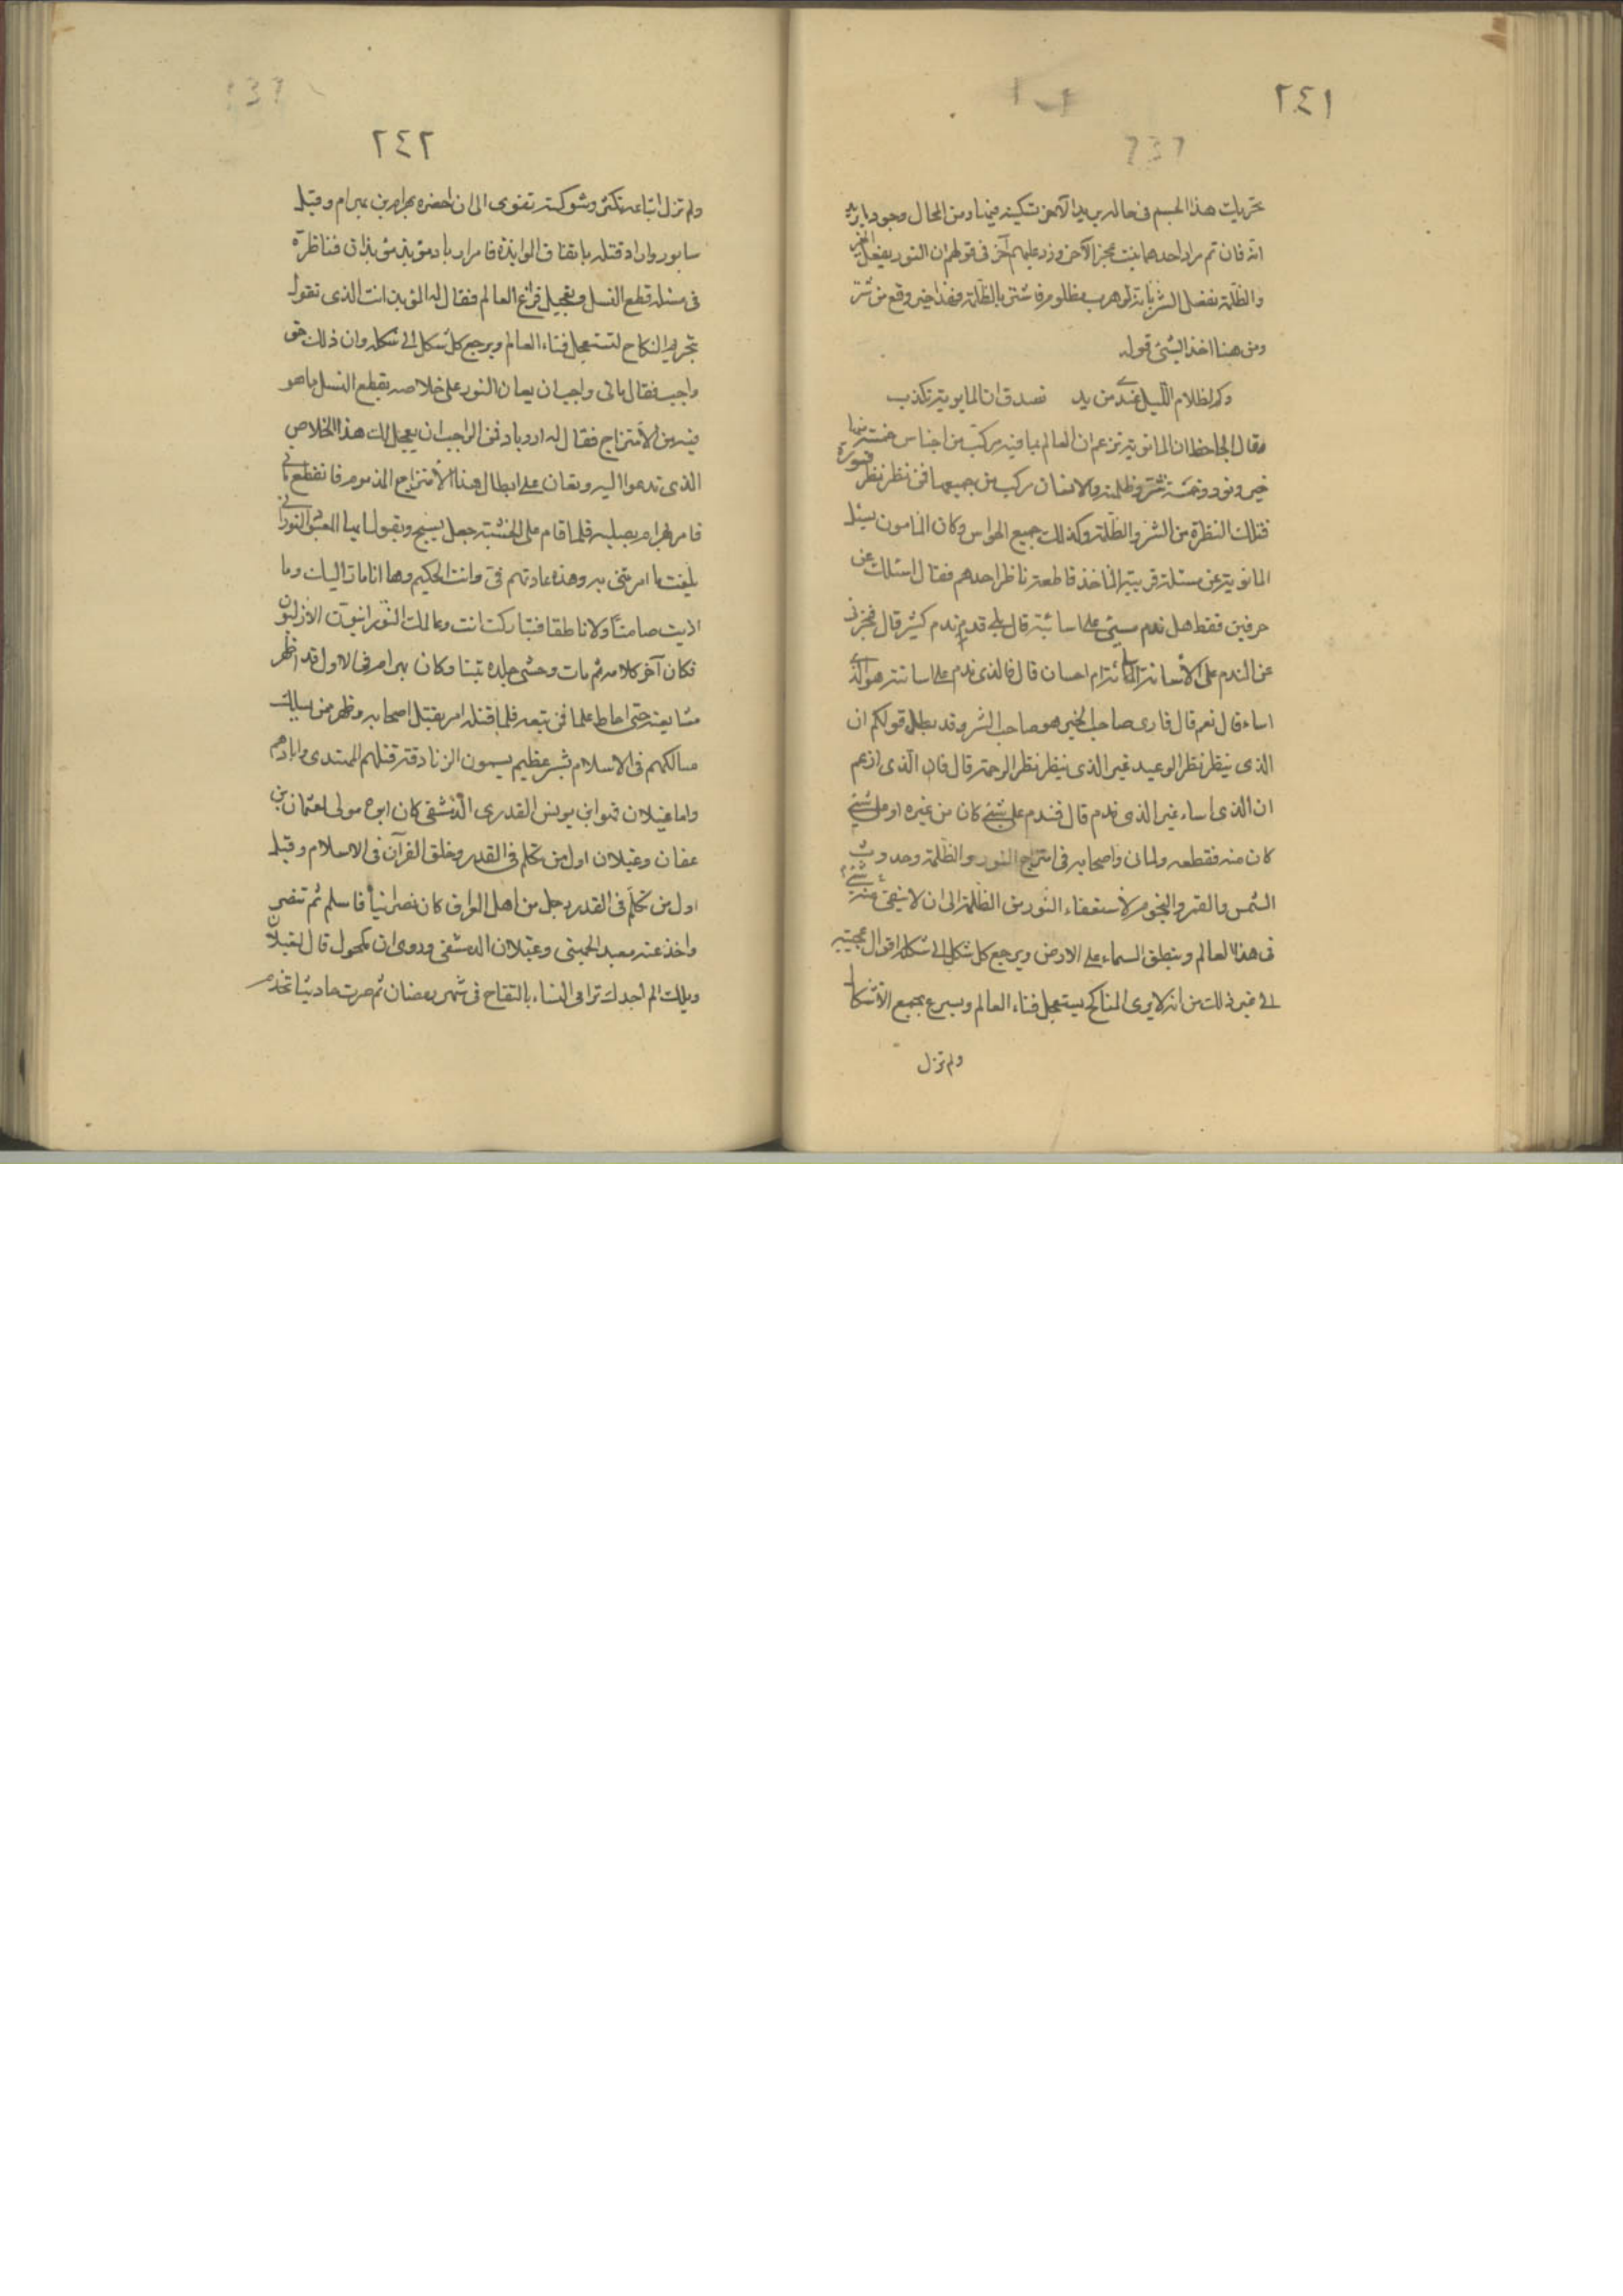 ٢٤١
تحريك هذا الجسم فى حاله يريد الآخر تسكينه فيها ومن المحال وجود ما يريد
انه فان تم مراد احدهما يثبت عجز الآخر وزد عليهم آخر فى قولهم ان النور يفعل الخير
والظلمة تفعل الشر بانه لو هرب مظلوم فاستتر بالظلمة فهذا خير وقع من شر
ومن هنا اخذ البستى قوله
وكم لظلام الليل عندى من يد تصدق ان المانويه تكذب
وقال الجاحظ ان المانويه تزعم ان العالم بما فيه مركب من اجناس خمسة منها
خير ونور وخمسة شر وظلمة والانسان مركب من جميعها فمن نظر نظر
فتلك النظرة من الشر والظلمة وكذلك جميع الحواس وكان المامون يسئل
المانويه عن مسئلة قريبة المأخذ قاطعة ناظر احدهم فقال اسئلك عن
حرفين فقط هل ندم مسيئ على اساءته قال بلى قد ندم كثير قال فخبرنى
عن الندم على الأساءة اساءة ام احسان قال فالذى ندم على اساءته هو الذى
اساء قال نعم قال فارى صاحب الخير هو صاحب الشر وقد بطل قولكم ان
الذى ينظر نظر الوعيد غير الذى ينظر نظر الرحمة قال فان الذى ازعم
ان الذى اساء غير الذى ندم قال فندم على شئ كان من غيره او على شئ
كان منه فقطعه ولمانى واصحابه فى امتزاج النور والظلمة وحدوث
الشمس والقمر والنجوم لأستصفاء النور من الظلمة الى ان لا يبقى منه شئ
فى هذا العالم وينطبق السماء على الارض ويرجع كل شكل الى شكله اقوال عجيبه
الى غير ذلك من انه لا يرى المناكح يستعجل فناء العالم ويسرع بجمع الأشكال
ولم تزل
٢٤٢
ولم تزل اتباعه تكثر وشوكته تقوى الى ان احضره بهرام بن بهرام وقيل
سابور واراد قتله باتفاق الموابذة فامر ادرباد موبذ موبذان فناظره
فى مسئله قطع النسل وتعجيل فراغ العالم فقال له الموبذ انت الذى تقول
بتحريم النكاح لتستعجل فناء العالم ويرجع كل شكل الى شكله وان ذلك حق
واجب فقال مانى واجب ان يعان النور على خلاصه بقطع النسل مما هو
فيه من الأمتزاج فقال له ادرباد فمن الواجب ان يعجل لك هذا الخلاص
الذى تدعوا اليه وتعان على ابطال هذا الأمتزاج المذموم فانقطع مانى
فامر بهرام بصلبه فلما قام على الخشبة جعل يسبح ويقول ايها المعشوق النورانى
بلغت ما امرتنى به وهذه عادتهم فى وانت الحكيم وها انا مار اليك وما
اذيت صامتا ولا ناطقا فتباركت انت وعالمك النورانيون الأزليون
فكان آخر كلامه ثم مات وحشى جلده تبنا وكان بهرام فى الاول قد اظهر
متابعته حتى احاط علما فمن تبعه فلما قتله امر بقتل اصحابه وظهر ممن يسلك
مسالكهم فى الاسلام بشر عظيم يسمون الزنادقة قتلهم المهتدى وابادهم
واما غيلان فهو ابن يونس القدرى الدمشقى كان ابوه مولى لعثمان بن
عفان وغيلان اول من تكلم فى القدر وخلق القرآن فى الاسلام وقيل
اول من تكلم فى القدر رجل من اهل العراق كان نصرانيا فاسلم ثم تنصر
واخذ عنه معبد الجهنى وغيلان الدمشقى وروى ان مكحول قال لغيلان
ويلك الم اجدك ترامى النساء بالتفاح فى شهر رمضان ثم صرت حارثيا تخدم